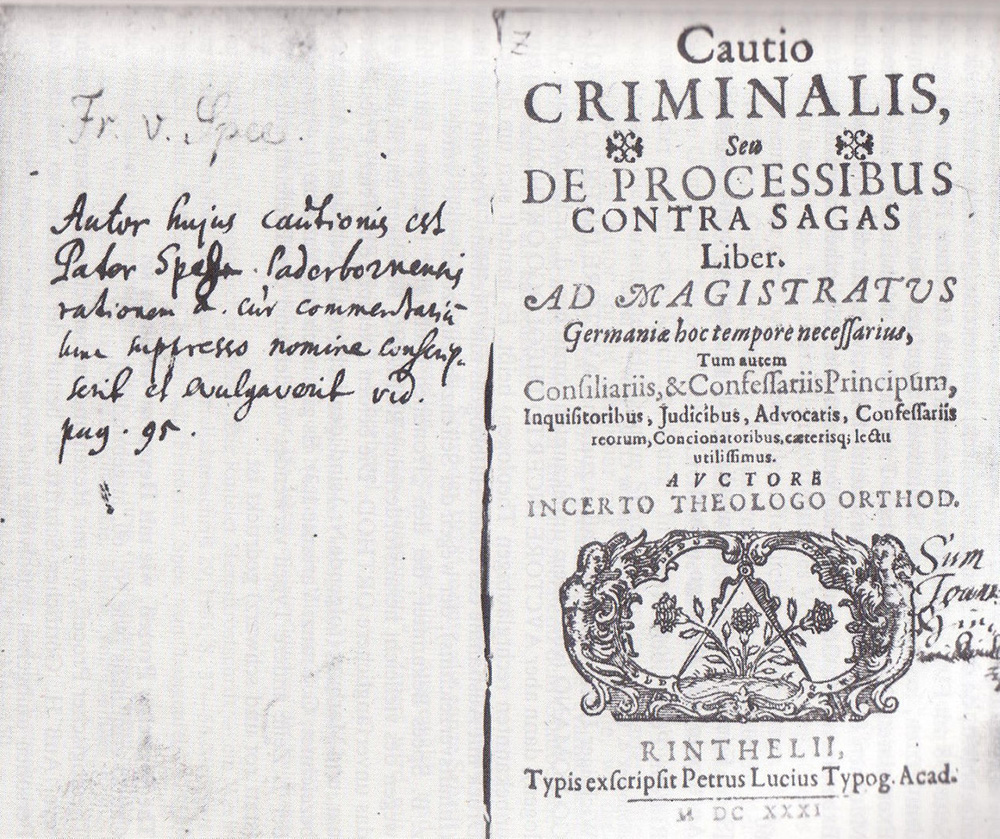 Fr. v. Spee.
Autor hujus cautionis est
Pater Spee Paderbornensis
rationem cur commentariū
hunc suppresso nomine conscrip-
serit et evulgaverit vid.
pag. 95.
Cautio
CRIMINALIS,
Seu
DE PROCESSIBUS
CONTRA SAGAS
Liber.
AD MAGISTRATUS
Germaniæ hoc tempore neceſſarius,
Tum autem
Conſiliariis, & Confeſſariis Principum,
Inquiſitoribus, Judicibus, Advocatis, Confeſſariis
reorum, Concionatoribus, cæterisq; lectu
utiliſſimus.
AVCTORE
INCERTO THEOLOGO ORTHOD.
Sum
RINTHELII,
Typis exſcripſit Petrus Lucius Typog. Acad.
M DC XXXI